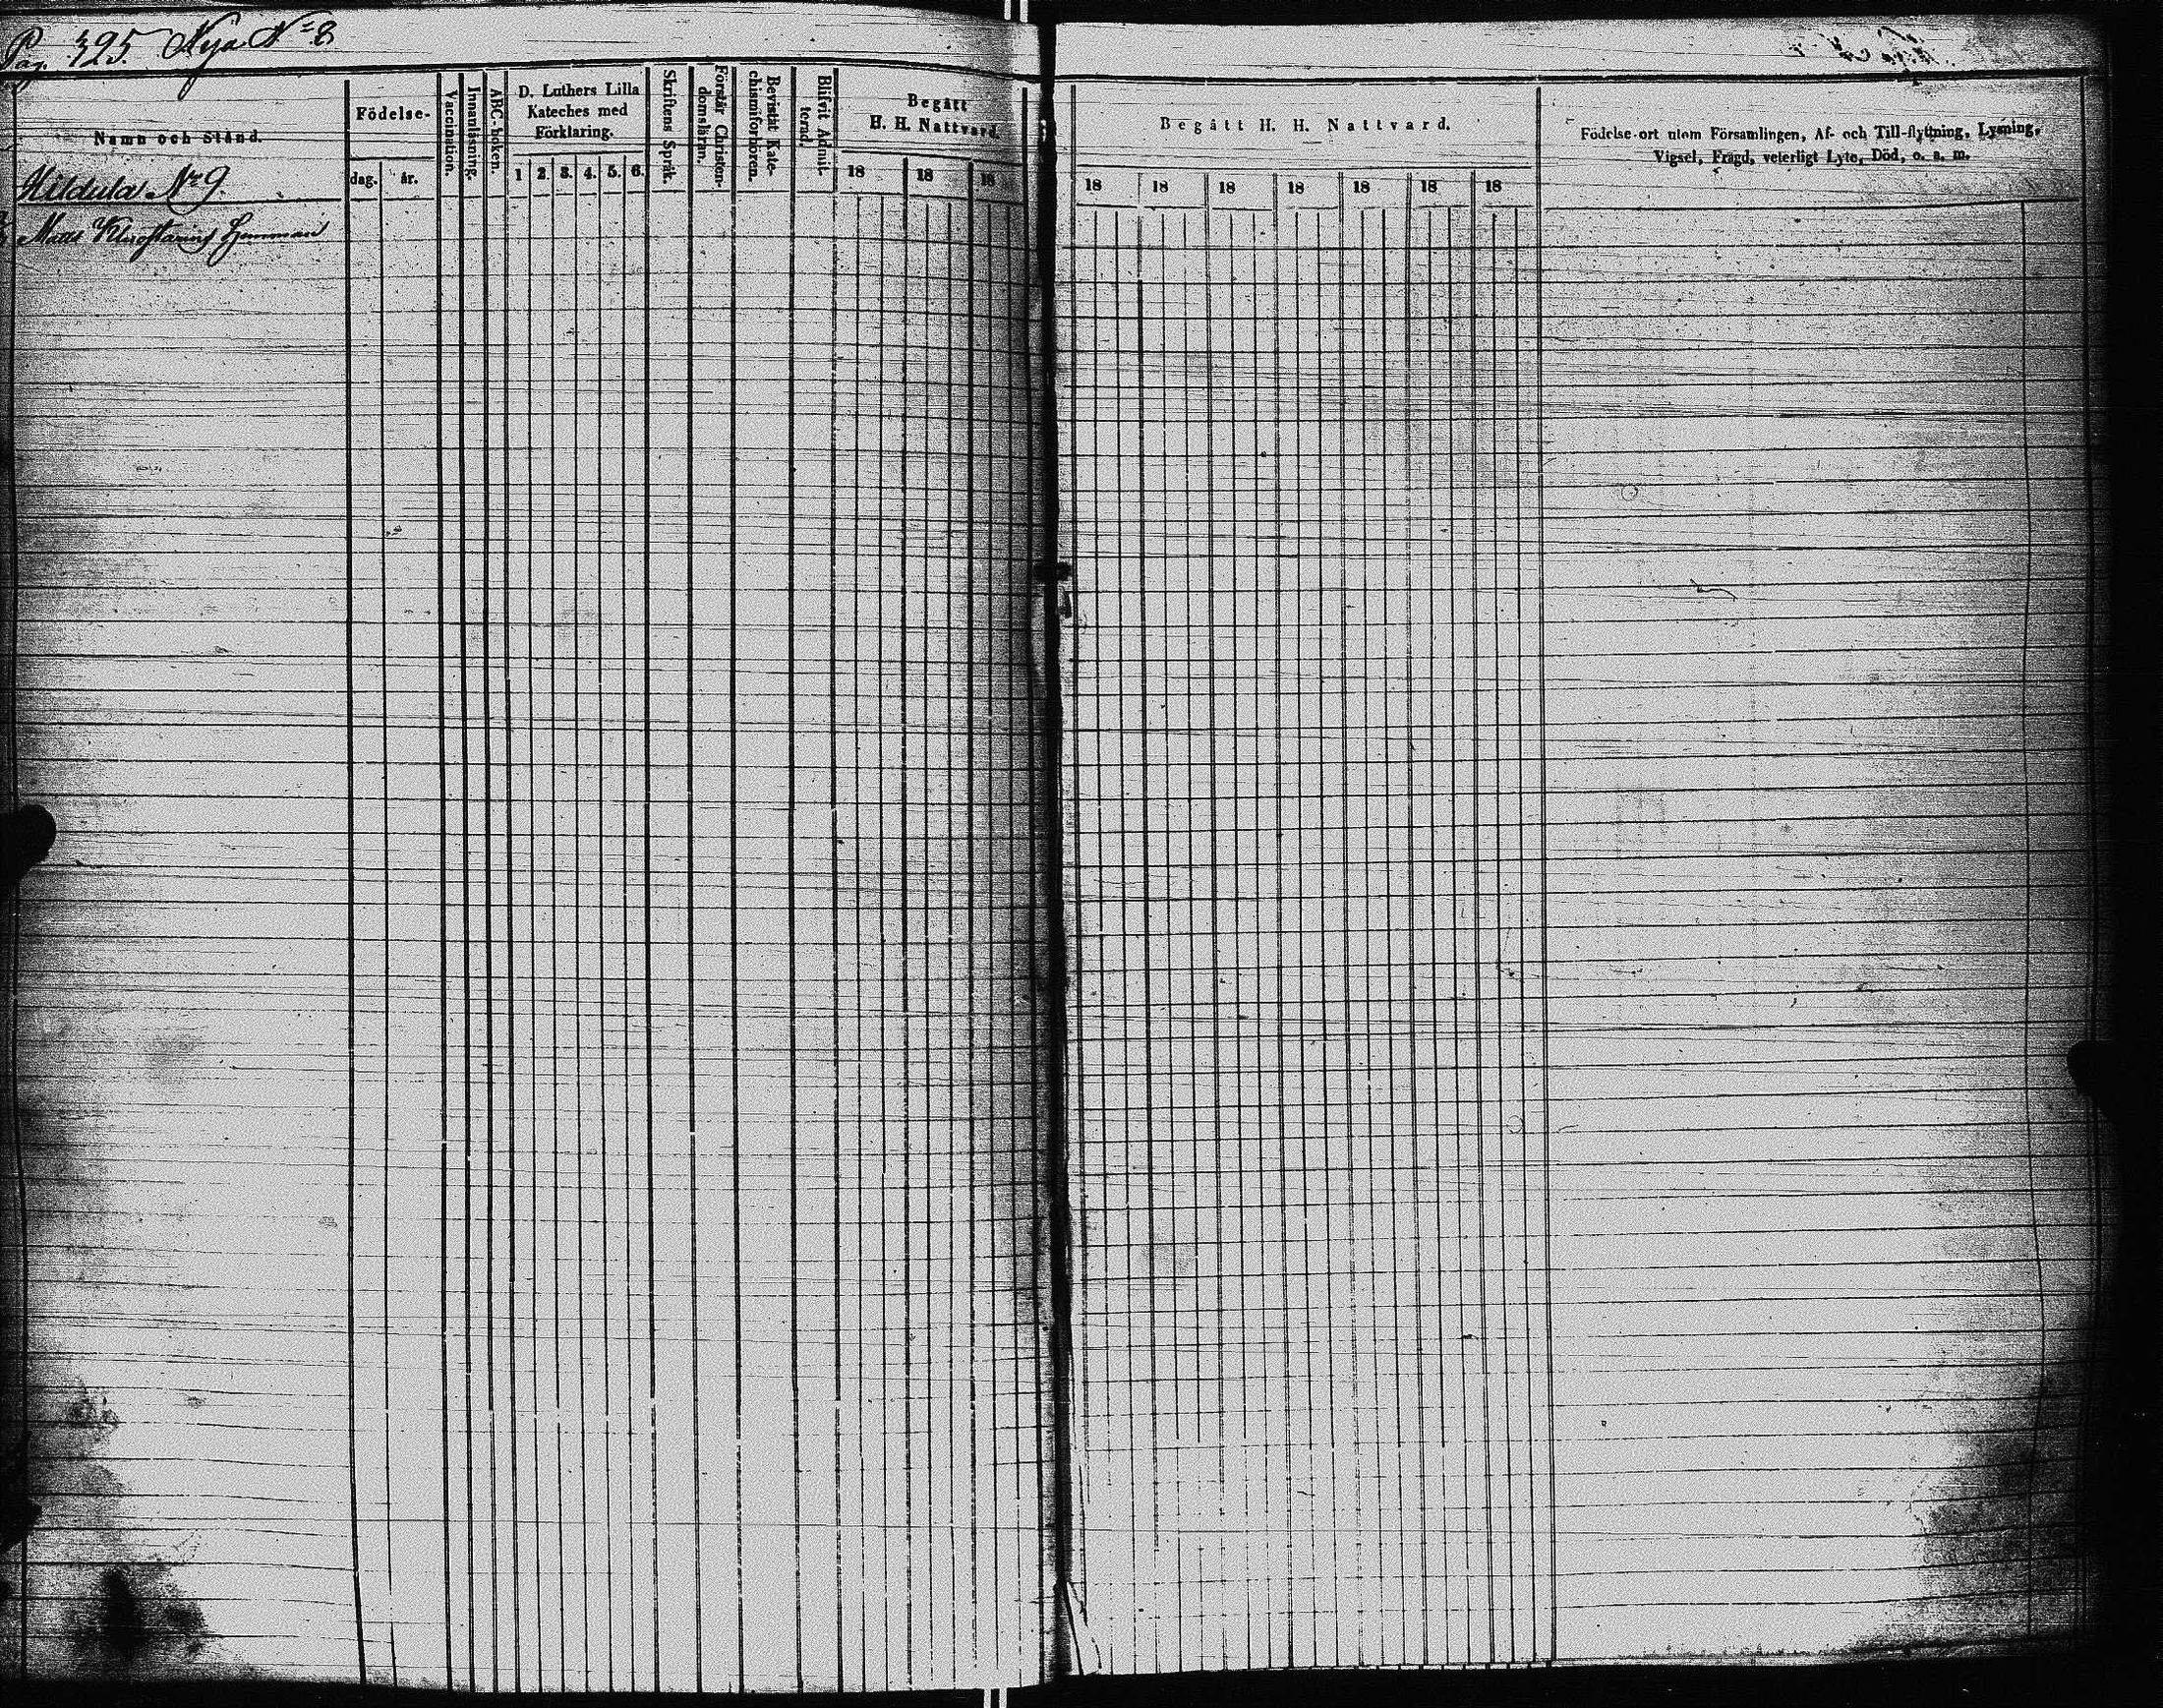 Pag. 395. Nya N=8
Namn och Stånd.
Födelse-
dag.
år.
Vaccination.
Innanläsning.
ABC-boken.
D. Luthers Lilla
Kateches med
Förklaring.
1 2. 3. 4. 5. 6.
Skriftens Språk.
Förstår Christen-
domsläran.
Bevistat Kate-
chismiförhören.
Blifvit Admit-
terad.
Begått
H. H. Nattvard.
18 18 18
Hildula No 9.
Matts
Begått H. H. Nattvard.
18 18 18 18 18 18 18
Födelse-ort utom Församlingen, Af- och Till-flyttning, Lysning,
Vigsel, Frägd, veterligt Lyte, Död, o. s. m.